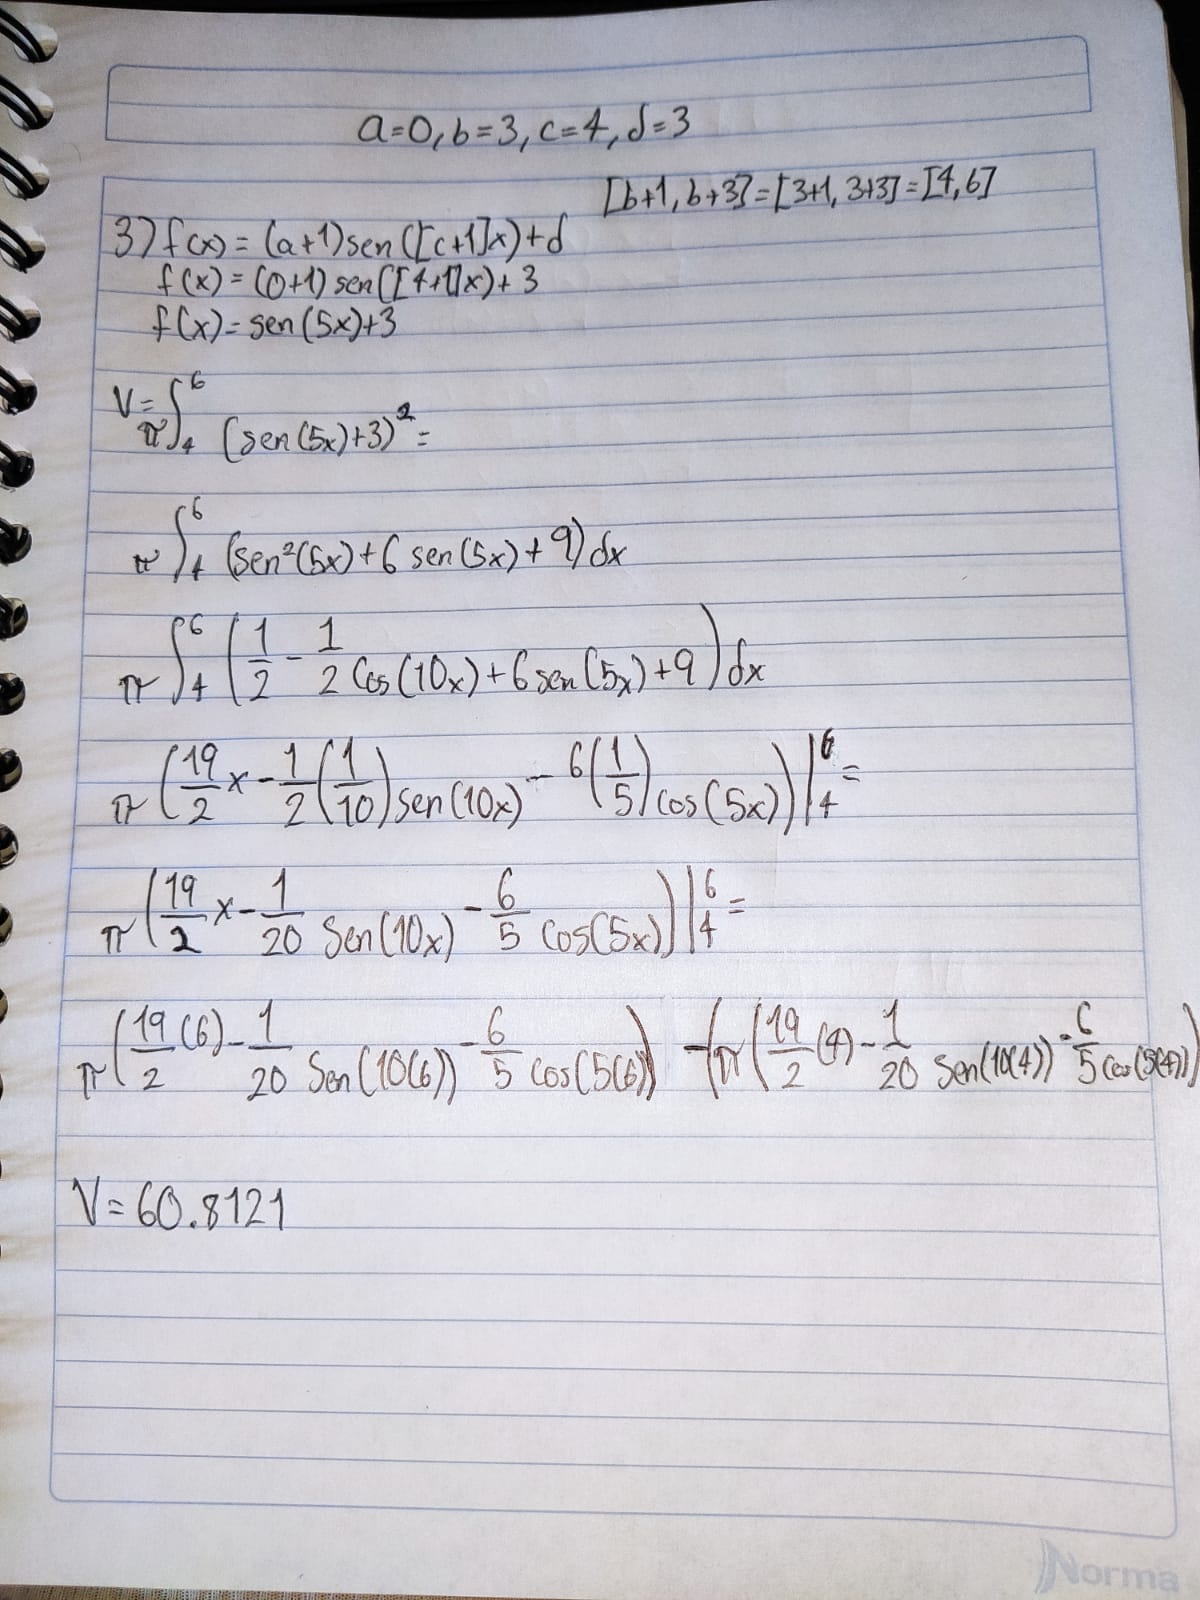 a=0, b=3, c=4, d=3
[b+1, b+3] = [3+1, 3+3] = [4, 6]
3) f(x) = (a+1) sen([c+1]x)+d
f(x) = (0+1) sen([4+1]x)+3
f(x) = sen(5x)+3
V = π∫₄⁶ (sen(5x)+3)² =
π∫₄⁶ (sen²(5x)+6 sen(5x)+9) dx
π∫₄⁶ (1/2 - 1/2 Cos(10x)+6 sen(5x)+9) dx
π(19/2 x - 1/2(1/10) sen(10x) - 6(1/5) cos(5x))|₄⁶ =
π(19/2 x - 1/20 Sen(10x) - 6/5 Cos(5x))|₄⁶ =
π(19/2 (6) - 1/20 Sen(10(6)) - 6/5 cos(5(6))) - (π(19/2 (4) - 1/20 Sen(10(4)) - 6/5 cos(5(4)))
V = 60.8121
Norma